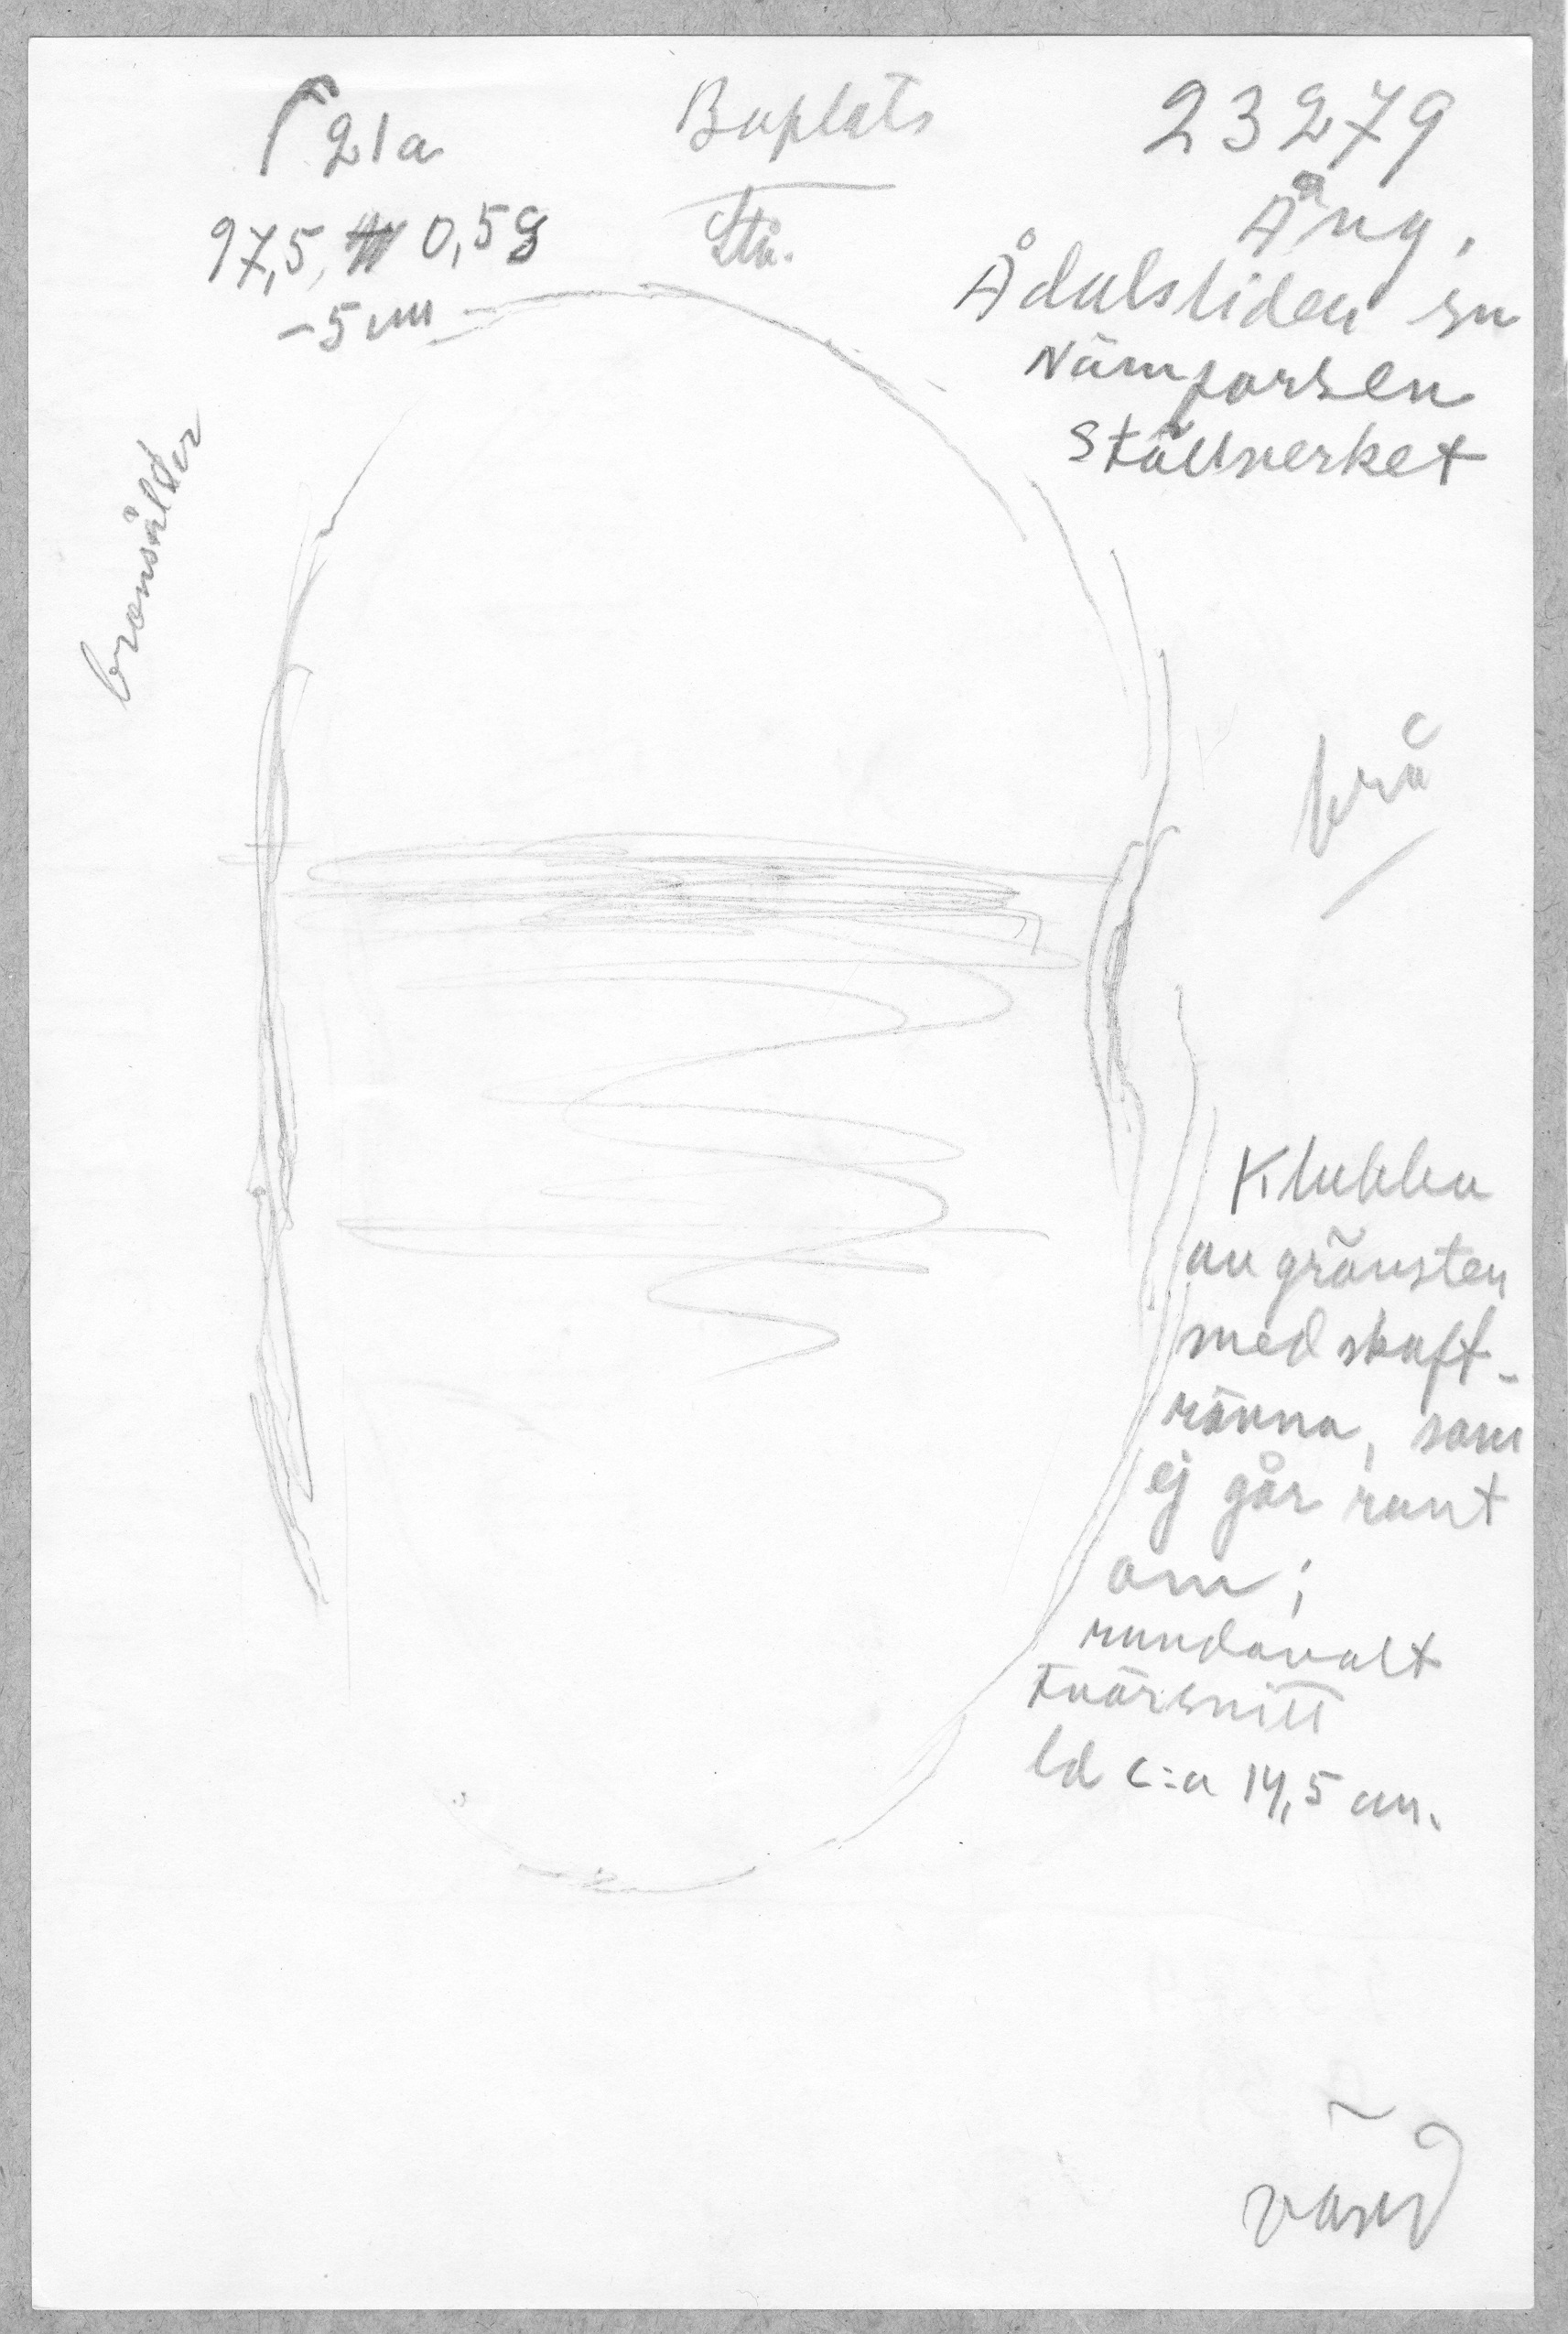 21a
97,5, 0,5
-5 cm
Boplats
23279
Ång.
Ådalsliden sn
Nämforsen
Ställverket
bronsålder
Klubba
av grönsten
med skaft-
ränna, som
ej går runt
om;
rundovalt
tvärsnitt
ld c:a 14,5 cm.
vänd